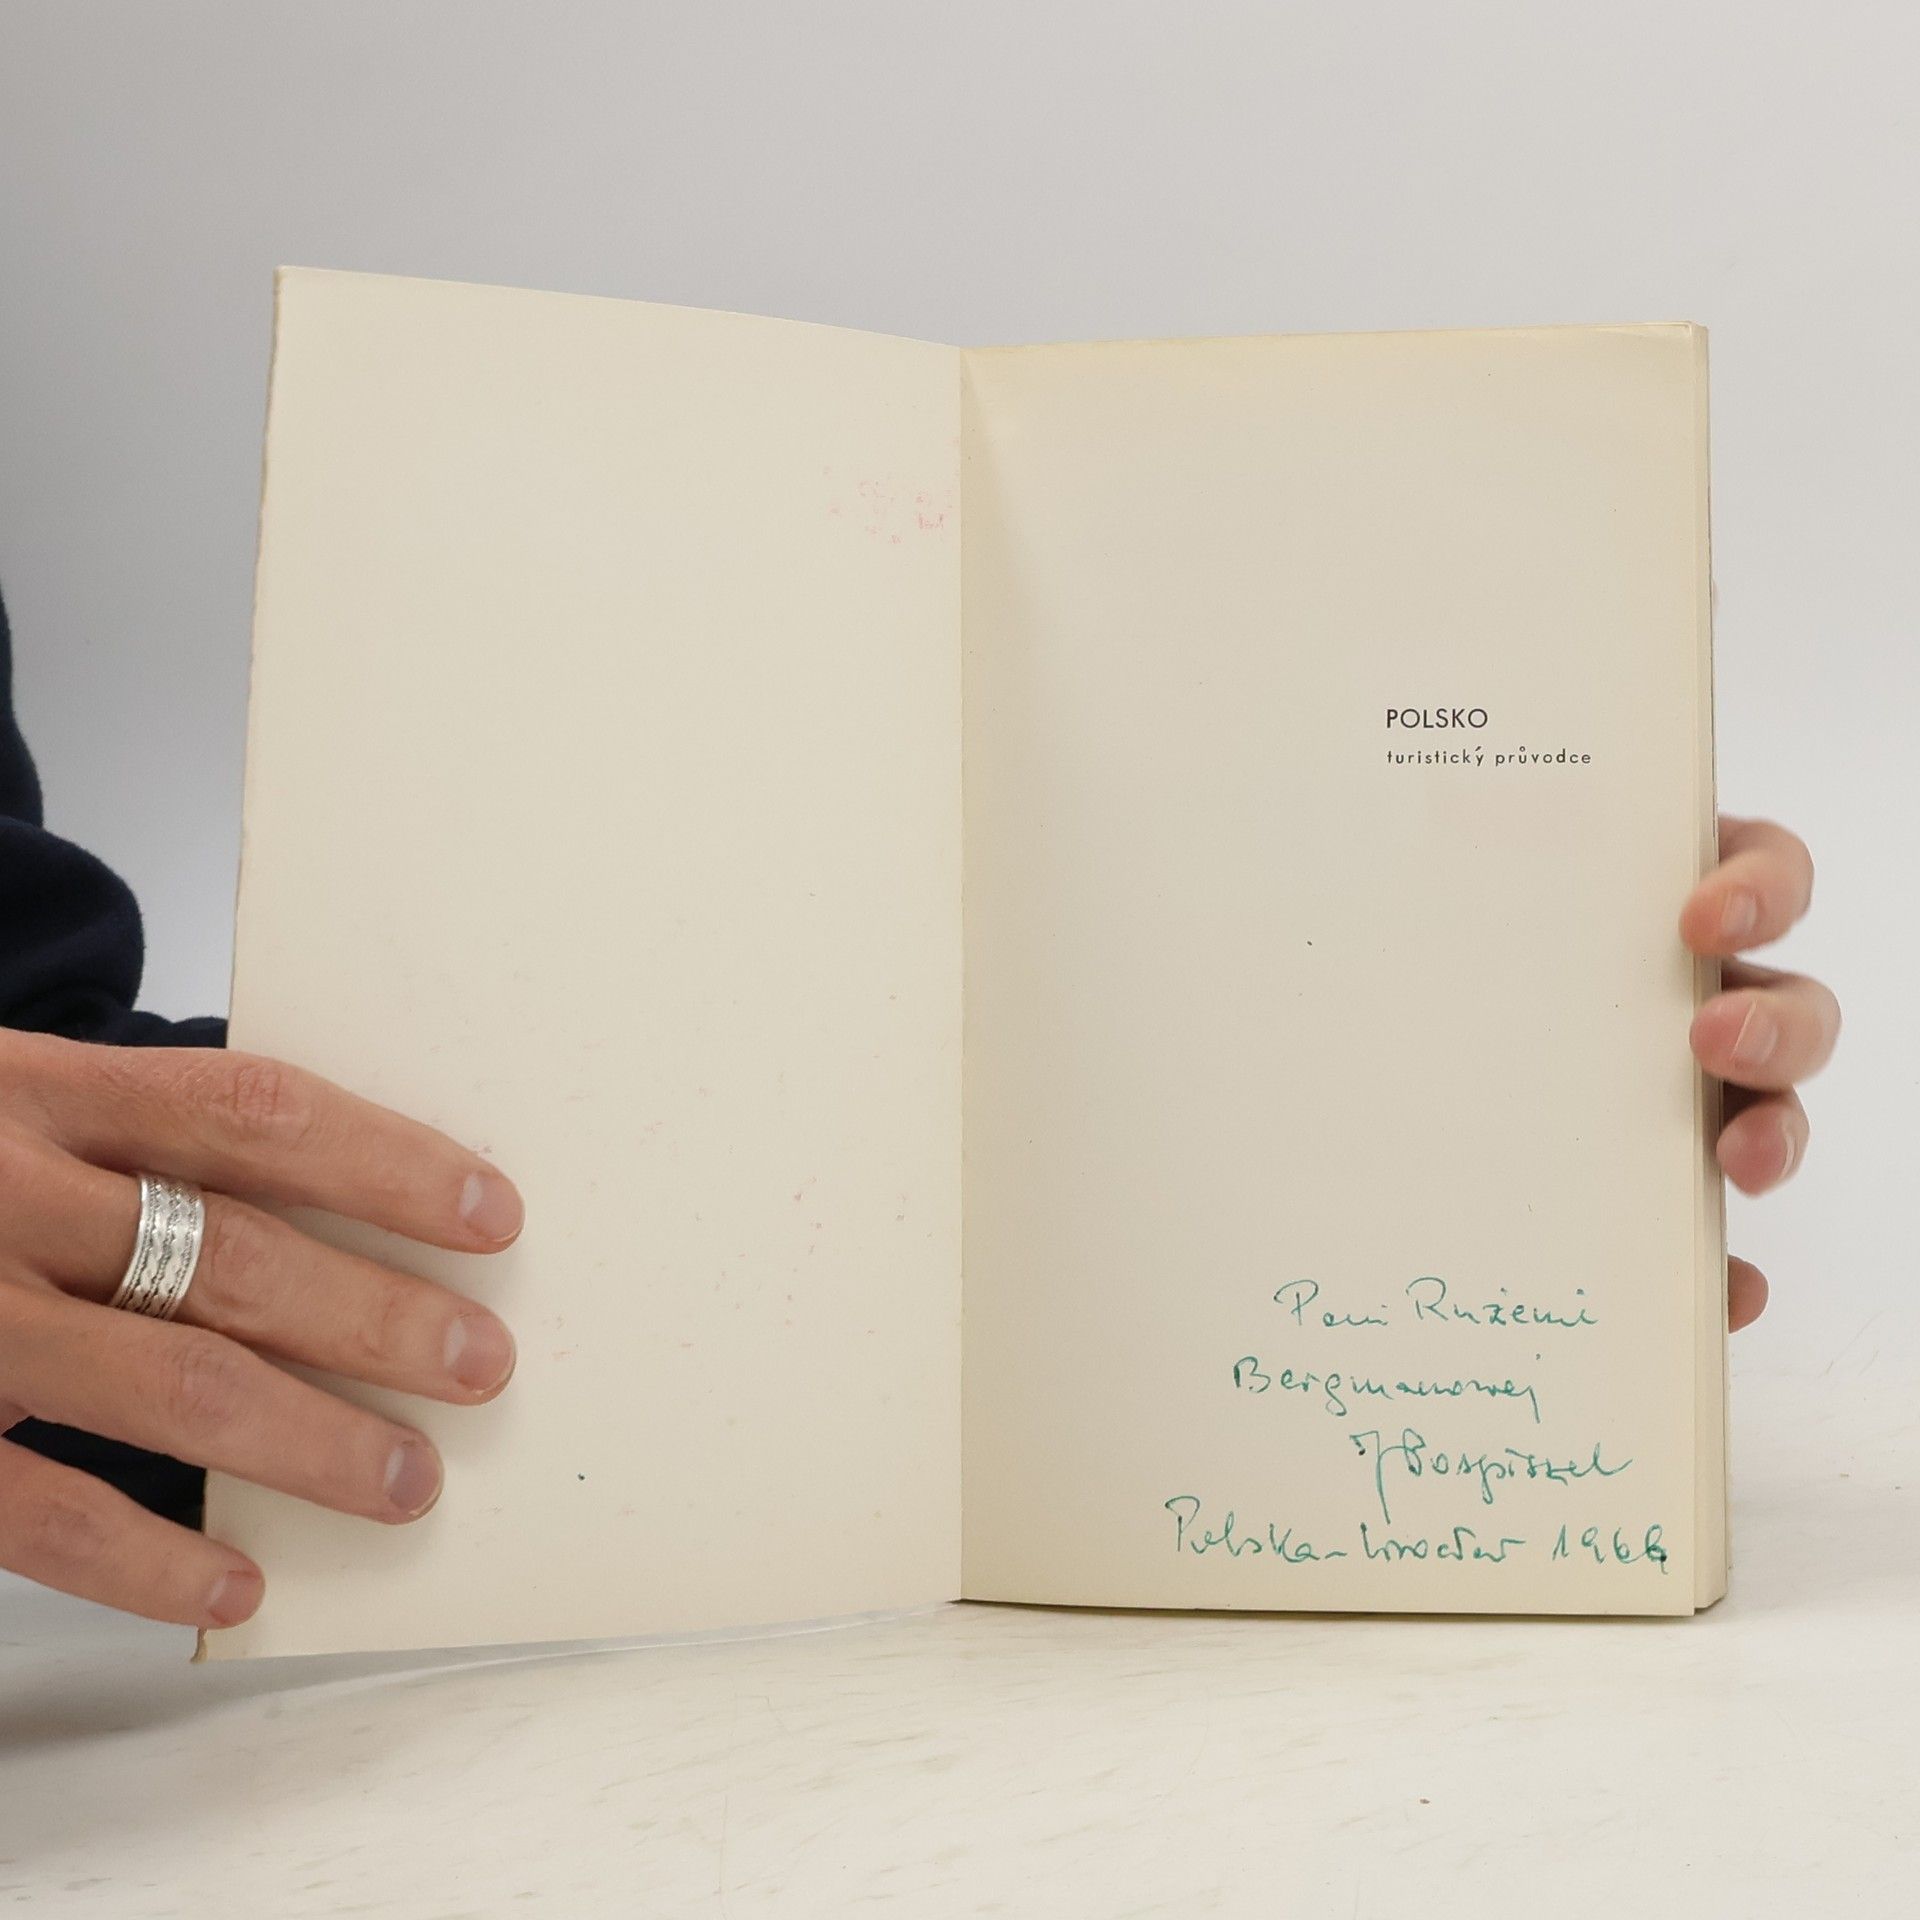 POLSKO
turistický průvodce
Pani Rużeni
Bergmanowej
J Pospiszel
Polska - Wrocław 1966